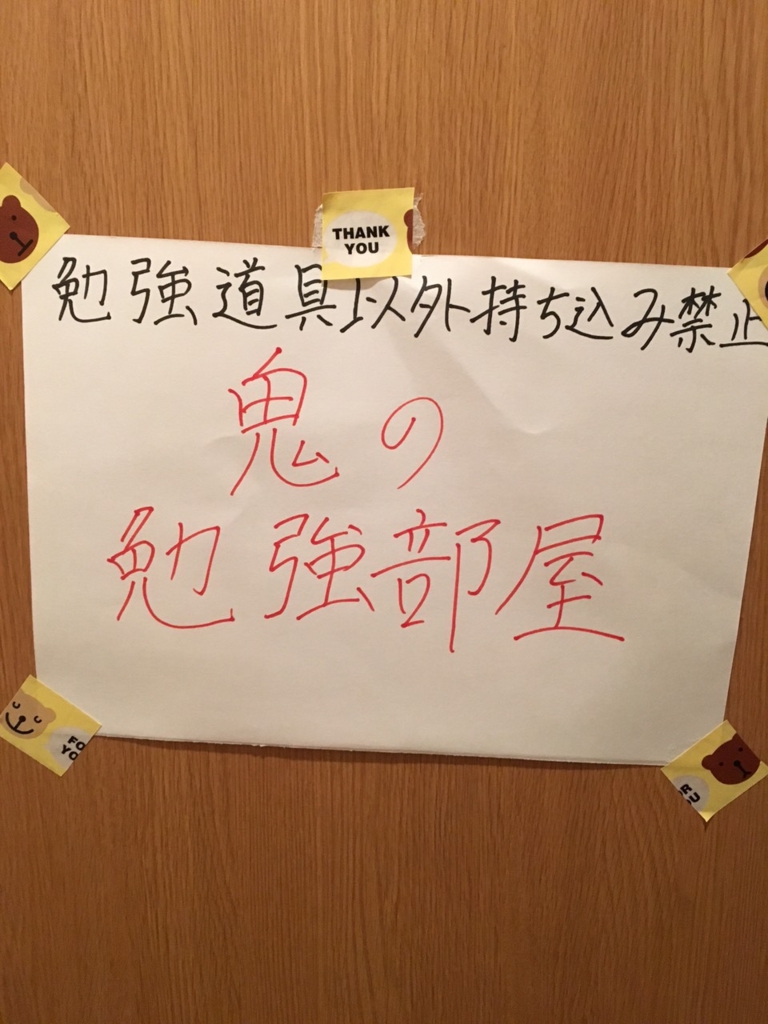 THANK
YOU
勉強道具以外持ち込み禁止
鬼の
勉強部屋
FO
YO
R
U